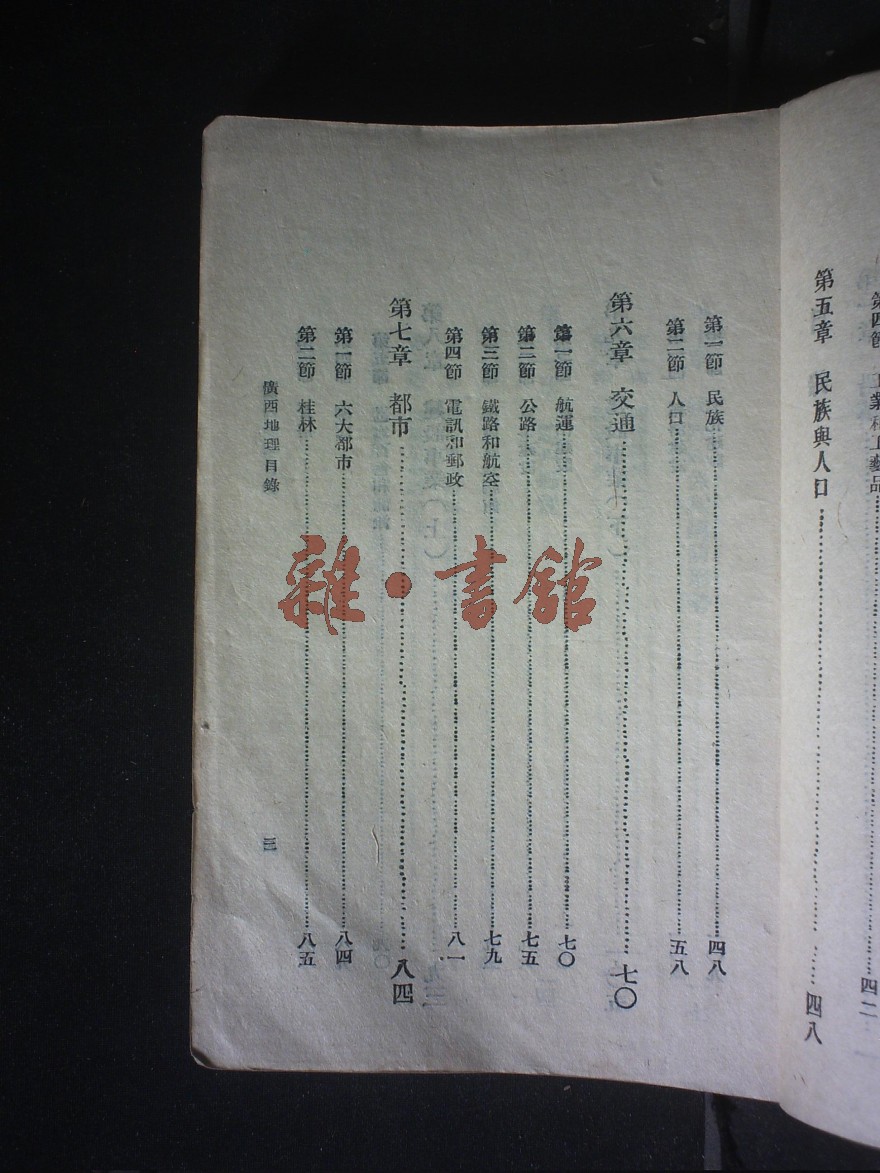 第四節 工業和工藝品……四二
第五章 民族與人口……四八
第一節 民族……四八
第二節 人口……五八
第六章 交通……七〇
第一節 航運……七〇
第二節 公路……七五
第三節 鐵路和航空……七九
第四節 電訊和郵政……八一
第七章 都市……八四
第一節 六大都市……八四
第二節 桂林……八五
廣西地理目錄
三
雜·書館